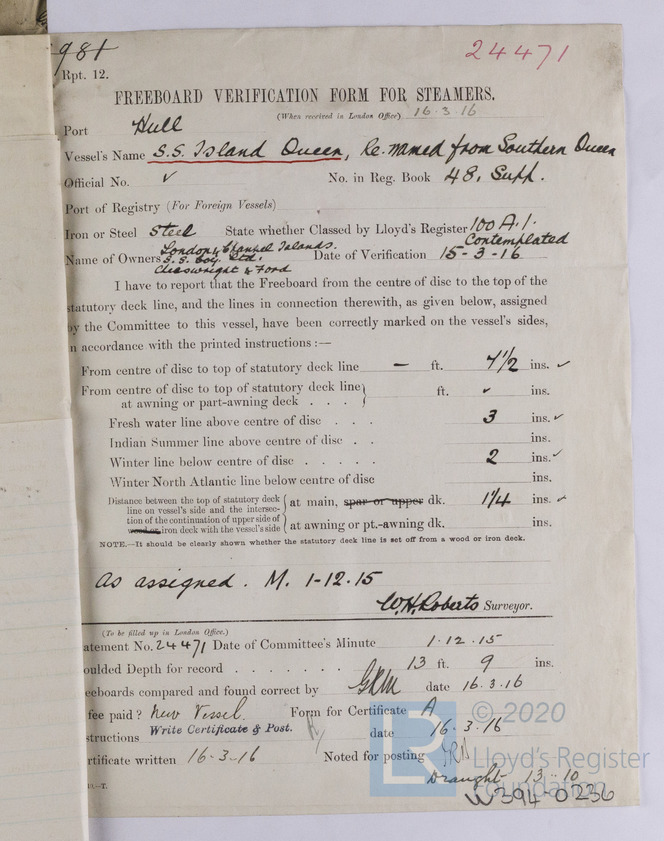 981
24471
Rpt. 12.
FREEBOARD VERIFICATION FORM FOR STEAMERS.
(When received in London Office) 16.3.16
Port Hull
Vessel's Name S.S. Island Queen, Re-named from Southern Queen
Official No. ✓ No. in Reg. Book 48, Supp.
Port of Registry (For Foreign Vessels)
Iron or Steel Steel State whether Classed by Lloyd's Register 100 A.1. Contemplated
Name of Owners London & Channel Islands. S.S. Coy. Ltd. Cheeswright & Ford Date of Verification 15-3-16
I have to report that the Freeboard from the centre of disc to the top of the
statutory deck line, and the lines in connection therewith, as given below, assigned
by the Committee to this vessel, have been correctly marked on the vessel's sides,
n accordance with the printed instructions :—
From centre of disc to top of statutory deck line — ft. 4 1/2 ins. ✓
From centre of disc to top of statutory deck line
at awning or part-awning deck . . . ft. ✓ ins.
Fresh water line above centre of disc . . . 3 ins. ✓
Indian Summer line above centre of disc . . ins.
Winter line below centre of disc . . . . . 2 ins. ✓
Winter North Atlantic line below centre of disc ins.
Distance between the top of statutory deck
line on vessel's side and the intersec-
tion of the continuation of upper side of
wood or iron deck with the vessel's side
at main, spar or upper dk. 1 1/4 ins. ✓
at awning or pt.-awning dk. ins.
NOTE.—It should be clearly shown whether the statutory deck line is set off from a wood or iron deck.
As assigned. M. 1-12.15
W.H. Roberts Surveyor.
(To be filled up in London Office.)
atement No. 24471 Date of Committee's Minute 1.12.15
oulded Depth for record . . . . . . . 13 ft. 9 ins.
eeboards compared and found correct by date 16.3.16
fee paid? New Vessel. Form for Certificate A
structions Write Certificate & Post. date 16.3.16
rtificate written 16-3-16 Noted for posting
Draught 13-10
D.—T.
W394-0236
© 2020
Lloyd's Register
Foundation